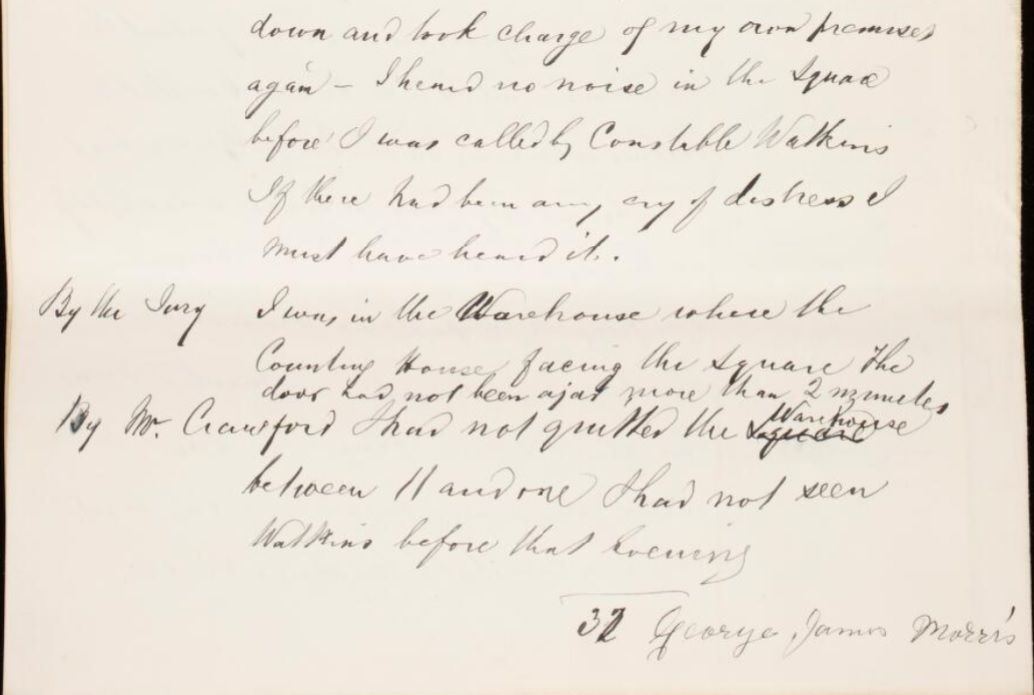 down and took charge of my own premises
again – I heard no noise in the Square
before I was called by Constable Watkins
If there had been any cry of distress I
must have heard it.
By the Jury I was in the Warehouse where the
Counting House facing the square The
door had not been ajar more than 2 minutes
Warehouse
By Mr. Crawford I had not quitted the square
between 11 and one I had not seen
Watkins before that Evening
32 George James Morris